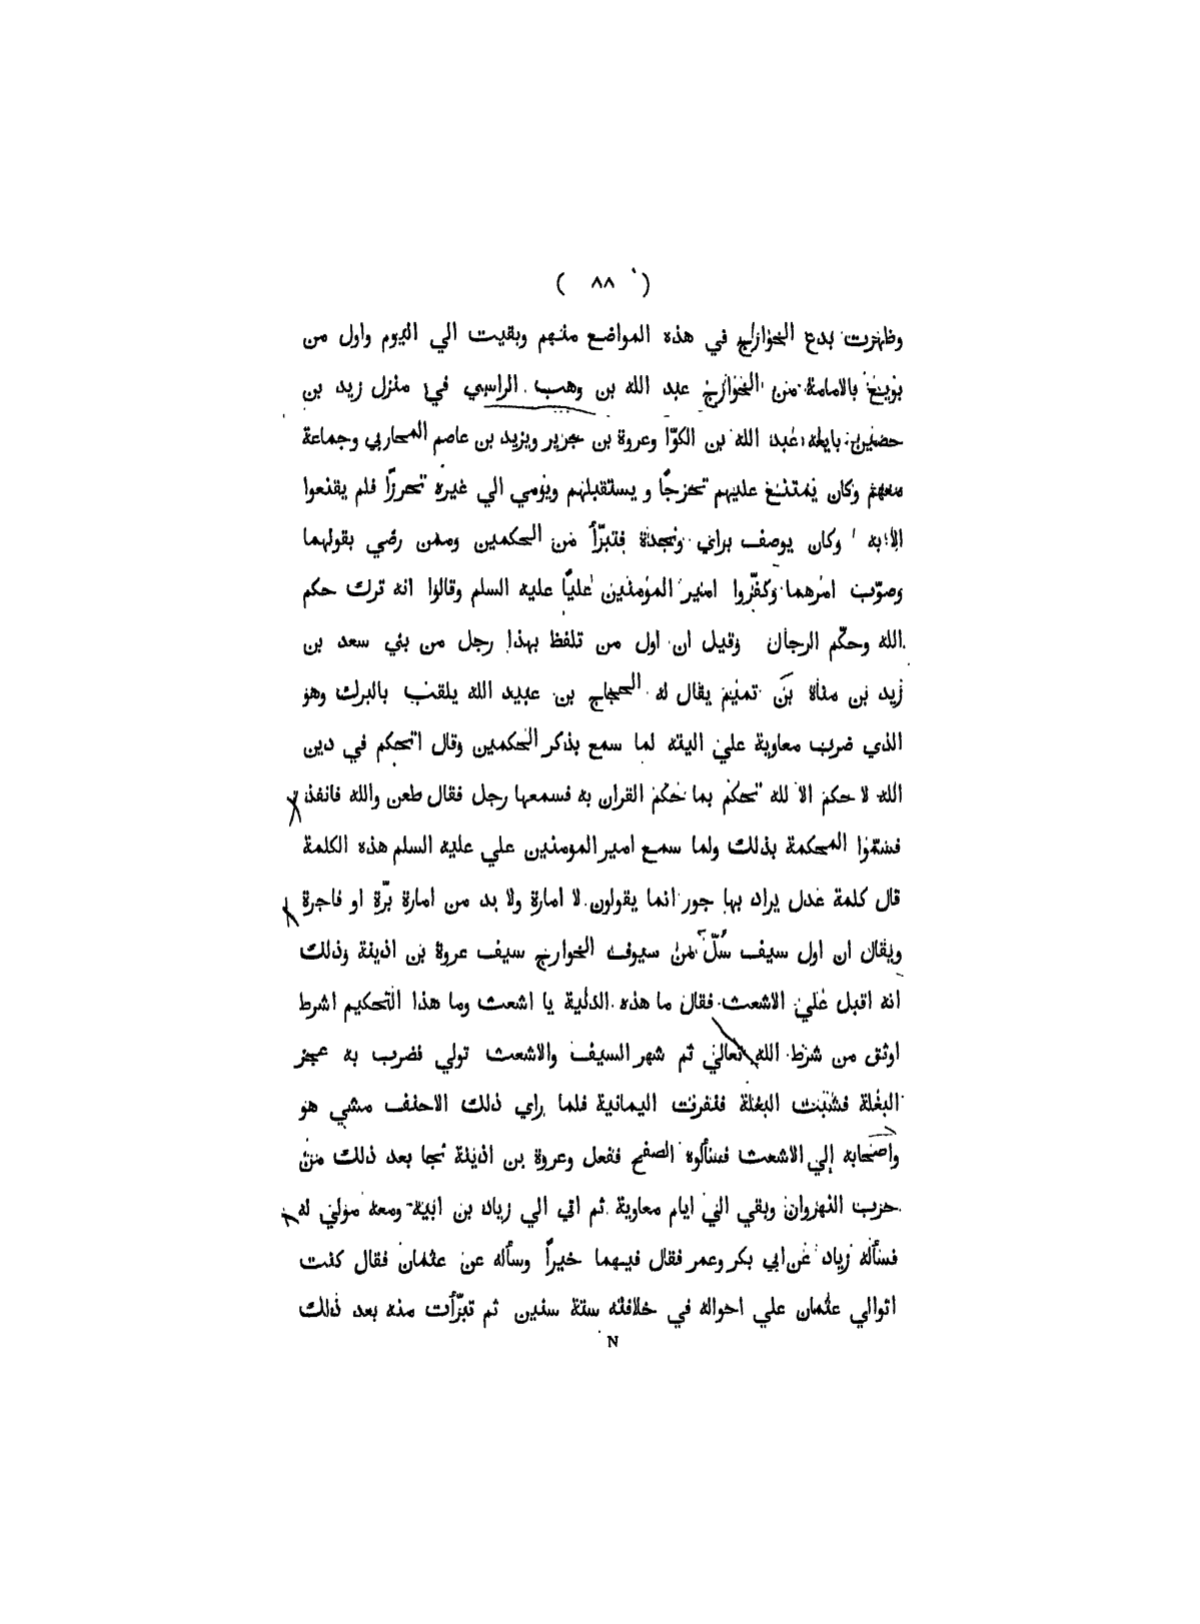 ( ٨٨ )
وظهرت بدع الخوارج في هذه المواضع منهم وبقيت الي اليوم واول من
بويع بالامامة من الخوارج عبد الله بن وهب الراسبي في منزل زيد بن
حضين بايعه عبد الله بن الكوّا وعروة بن جرير ويزيد بن عاصم المحاربي وجماعة
معهم وكان يمتنع عليهم تحرجًا ويستقبلهم ويومي الي غيره تحرزًا فلم يقنعوا
الا به وكان يوصف براي ونجدة فتبرّأ من الحكمين وممن رضي بقولهما
وصوّب امرهما وكفّروا امير المؤمنين عليًا عليه السلم وقالوا انه ترك حكم
الله وحكّم الرجال وقيل ان اول من تلفظ بهذا رجل من بني سعد بن
زيد بن مناة بن تميم يقال له الحجاج بن عبيد الله يلقب بالبرك وهو
الذي ضرب معاوية علي اليته لما سمع بذكر الحكمين وقال اتحكم في دين
الله لا حكم الا لله تحكم بما حكم القران به فسمعها رجل فقال طعن والله فانفذ
فسمّوا المحكمة بذلك ولما سمع امير المومنين علي عليه السلم هذه الكلمة
قال كلمة عدل يراد بها جور انما يقولون لا امارة ولا بد من امارة برّة او فاجرة
ويقال ان اول سيف سُلّ من سيوف الخوارج سيف عروة بن اذينة وذلك
انه اقبل علي الاشعث فقال ما هذه الدنية يا اشعث وما هذا التحكيم اشرط
اوثق من شرط الله تعالي ثم شهر السيف والاشعث تولي فضرب به عجز
البغلة فشبت البغلة فنفرت اليمانية فلما راي ذلك الاحنف مشي هو
واصحابه إلي الاشعث فسألوه الصفح ففعل وعروة بن اذينة نجا بعد ذلك من
حرب النهروان وبقي الي ايام معاوية ثم اتي الي زياد بن ابيه ومعه مولي له
فسأله زياد عن ابي بكر وعمر فقال فيهما خيراً وسأله عن عثمان فقال كنت
اتوالي عثمان علي احواله في خلافته ستة سنين ثم تبرّأت منه بعد ذلك
N